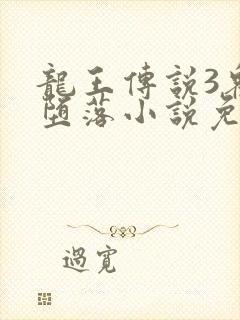 龍王傳說3
墮落小說免
過寬